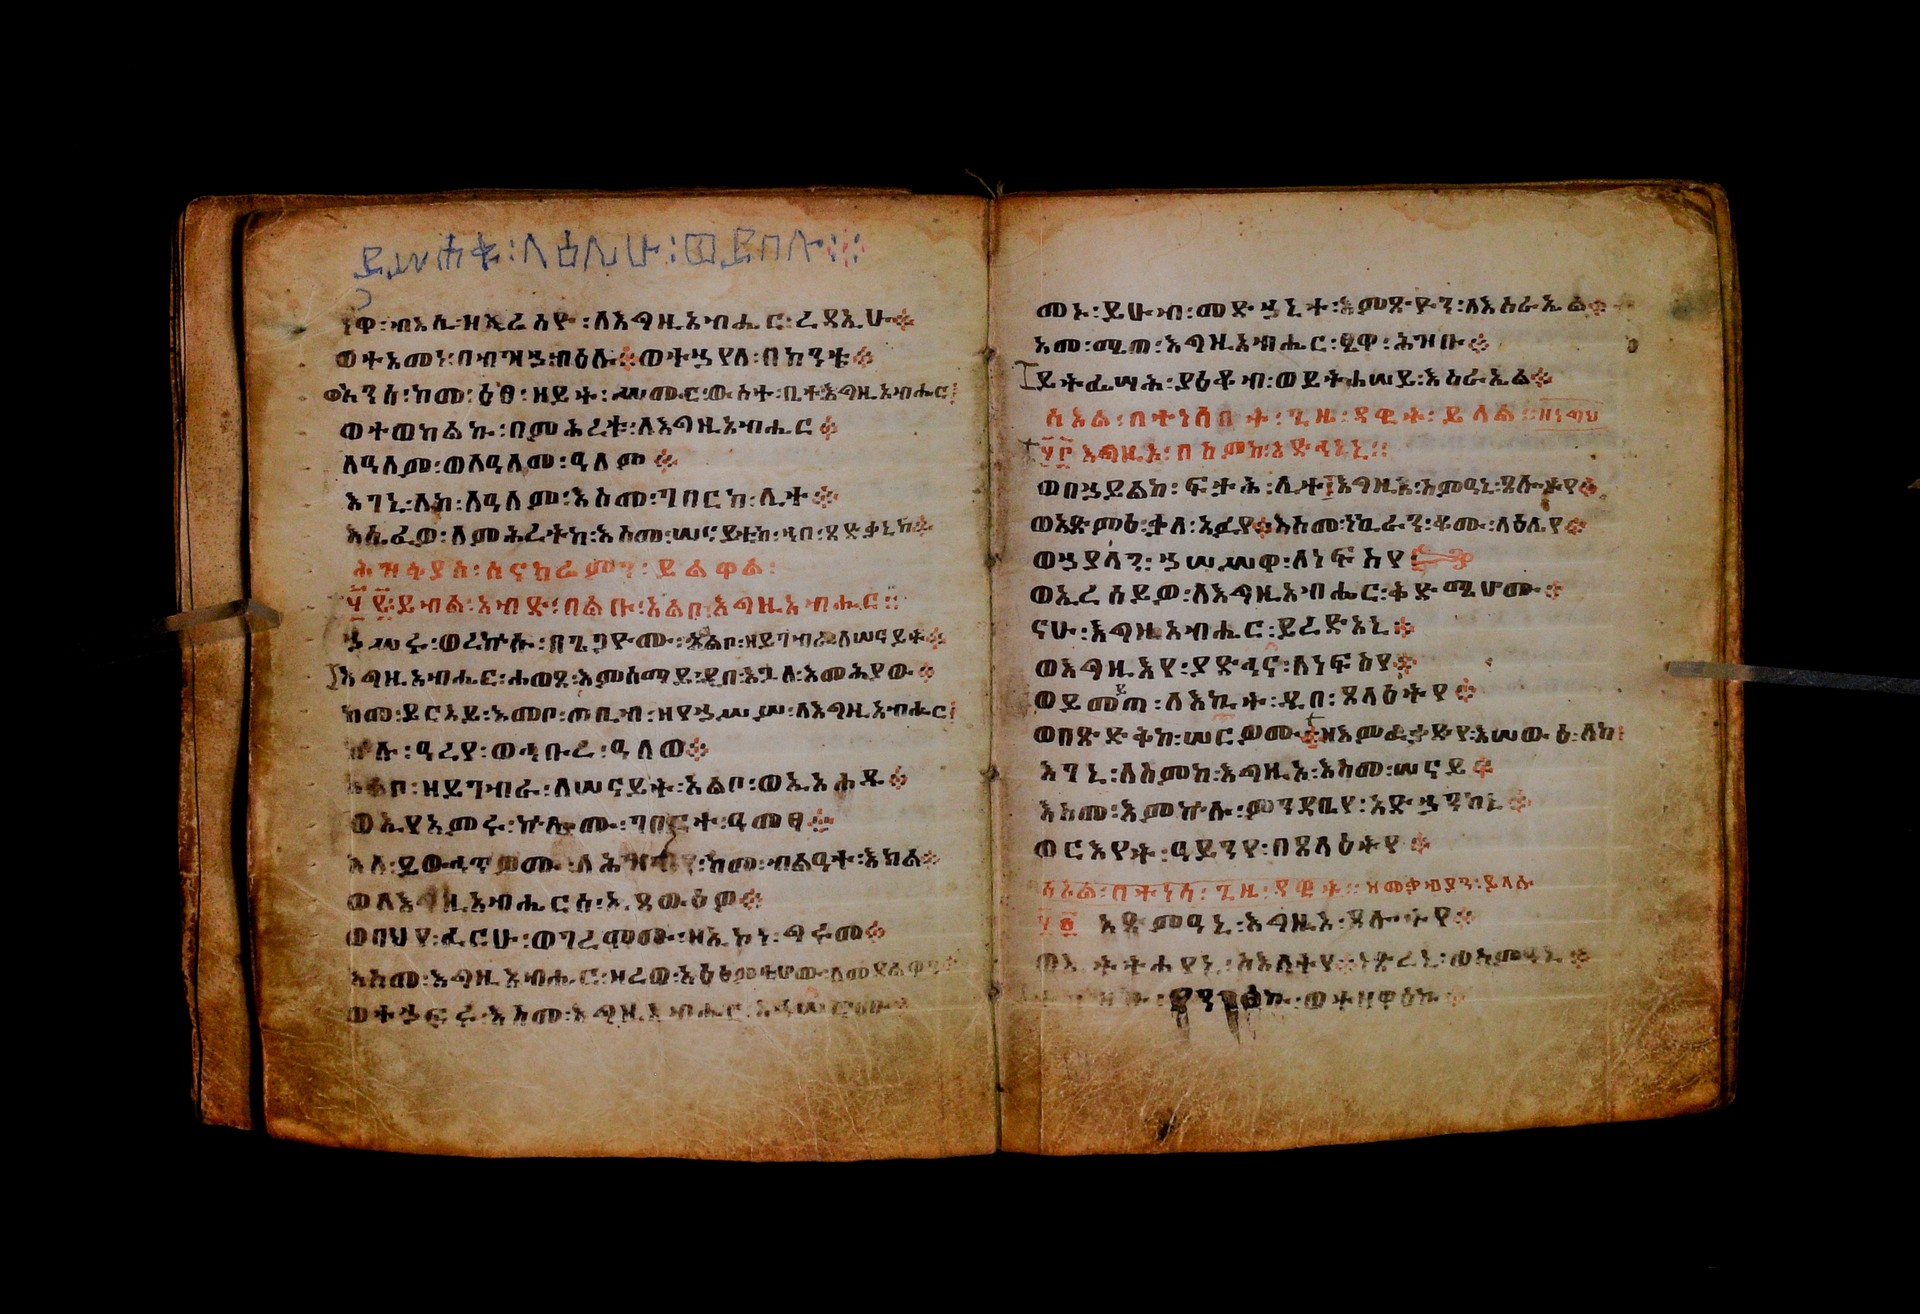 ይሠሐቁ፡ላዕሌሁ፡ወይበሉ፨
ነዋ፡ብእሲ፡ዘኢረሰዮ፡ለእግዚአብሔር፡ረዳኢሁ፨
ወተአመነ፡በብዝኃ፡ብዕሉ፨ወተኃየለ፡በከንቱ፨
ወአንሰ፡ከመ፡ዕፀ፡ዘይት፡ሥሙር፡ውስተ፡ቤተእግዚአብሔር፤
ወተወከልኩ፡በምሕረቱ፡ለእግዚአብሔር፨
ለዓለም፡ወለዓለመ፡ዓለም፨
እገኒ፡ለከ፡ለዓለም፡እስመ፡ገበርከ፡ሊተ፨
እሴፈው፡ለምሕረትከ፡እስመ፡ሠናይትከ፡ኀበ፡ጻድቃኒከ፨
ሕዝቅያስ፡ሰናክሬምን፡ይልዋል፡
፶፪፡ይብል፡አብድ፡በልቡ፡አልቦ፡እግዚአብሔር፡፡
ኃሥሩ፡ወረኵሱ፡በጌጋዮሙ፡አልቦ፡ዘይገብራ፡ለሠናይት፨
እግዚአብሔር፡ሐወጸ፡እምሰማይ፡ዲበ፡እጓለ፡እመሕያው፨
ከመ፡ይርአይ፡እመቦ፡ጠቢብ፡ዘየኃሥሦ፡ለእግዚአብሔር፤
ኵሉ፡ዓረየ፡ወኀቡረ፡ዓለወ፨
አልቦ፡ዘይገብራ፡ለሠናይት፡አልቦ፡ወኢአሐዱ፨
ወኢየአምሩ፡ኵሎሙ፡ገበርተ፡ዓመፃ፨
እለ፡ይውኅጥዎሙ፡ለሕዝብየ፡ከመ፡ብልዓተ፡እክል፨
ወለእግዚአብሔርሰ፡ኢጸውዕዎ፨
ወበህየ፡ፈርሁ፡ወገረሞሙ፡ዘኢኮነ፡ግሩመ፨
እስመ፡እግዚአብሔር፡ዘረወ፡አዕፅምቲሆሙ፡ለመደልዋን፨
ወተኃፍሩ፡እስመ፡እግዚአብሔር፡አኃሠሮሙ፨
መኑ፡ይሁብ፡መድኃኒተ፡እምጽዮን፡ለእስራኤል፨
አመ፡ሜጠ፡እግዚአብሔር፡ፄዋ፡ሕዝቡ፨
ይትፌሣሕ፡ያዕቆብ፡ወይትሐሠይ፡እስራኤል፨
ስእል፡በተነሰበት፡ጊዜ፡ዳዊት፡ይላል፡
፶፫ እግዚኦ፡በስምከ፡አድኅነኒ፡፡
ወበኃይልከ፡ፍታሕ፡ሊተ፤እግዚኦ፡ስምዓኒ፡ጸሎትየ፨
ወአጽምዕ፡ቃለ፡አፉየ፨እስመ፡ነኪራን፡ቆሙ፡ላዕሌየ፨
ወኃያላን፡ኃሠሥዋ፡ለነፍስየ
ወኢረሰይዎ፡ለእግዚአብሔር፡ቅድሜሆሙ፨
ናሁ፡እግዚአብሔር፡ይረድአኒ፨
ወእግዚእየ፡ያድኅና፡ለነፍስየ፨
ወይመይጣ፡ለእኪት፡ዲበ፡ጸላዕትየ፨
ወበጽድቅከ፡ሠርዎሙ፨ዘእምፈቃድየ፡እሠውዕ፡ለከ፤
እገኒ፡ለስምከ፡እግዚኦ፡እስመ፡ሠናይ፨
እስመ፡እምኵሉ፡ምንዳቤየ፡አድኃንከኒ፨
ወርእየት፡ዓይንየ፡በጸላዕትየ፨
ስእል፡በተነሳ፡ጊዜ፡ዳዊት፡፡ዝመቃብያን፡ይላሉ
፶፬ አጽምዓኒ፡እግዚኦ፡ጸሎትየ፨
ወኢትትሐየኒ፡ስእለትየ፨ነጽረኒ፡ወስምዓኒ፨
ወተዘዋዕኩ፨